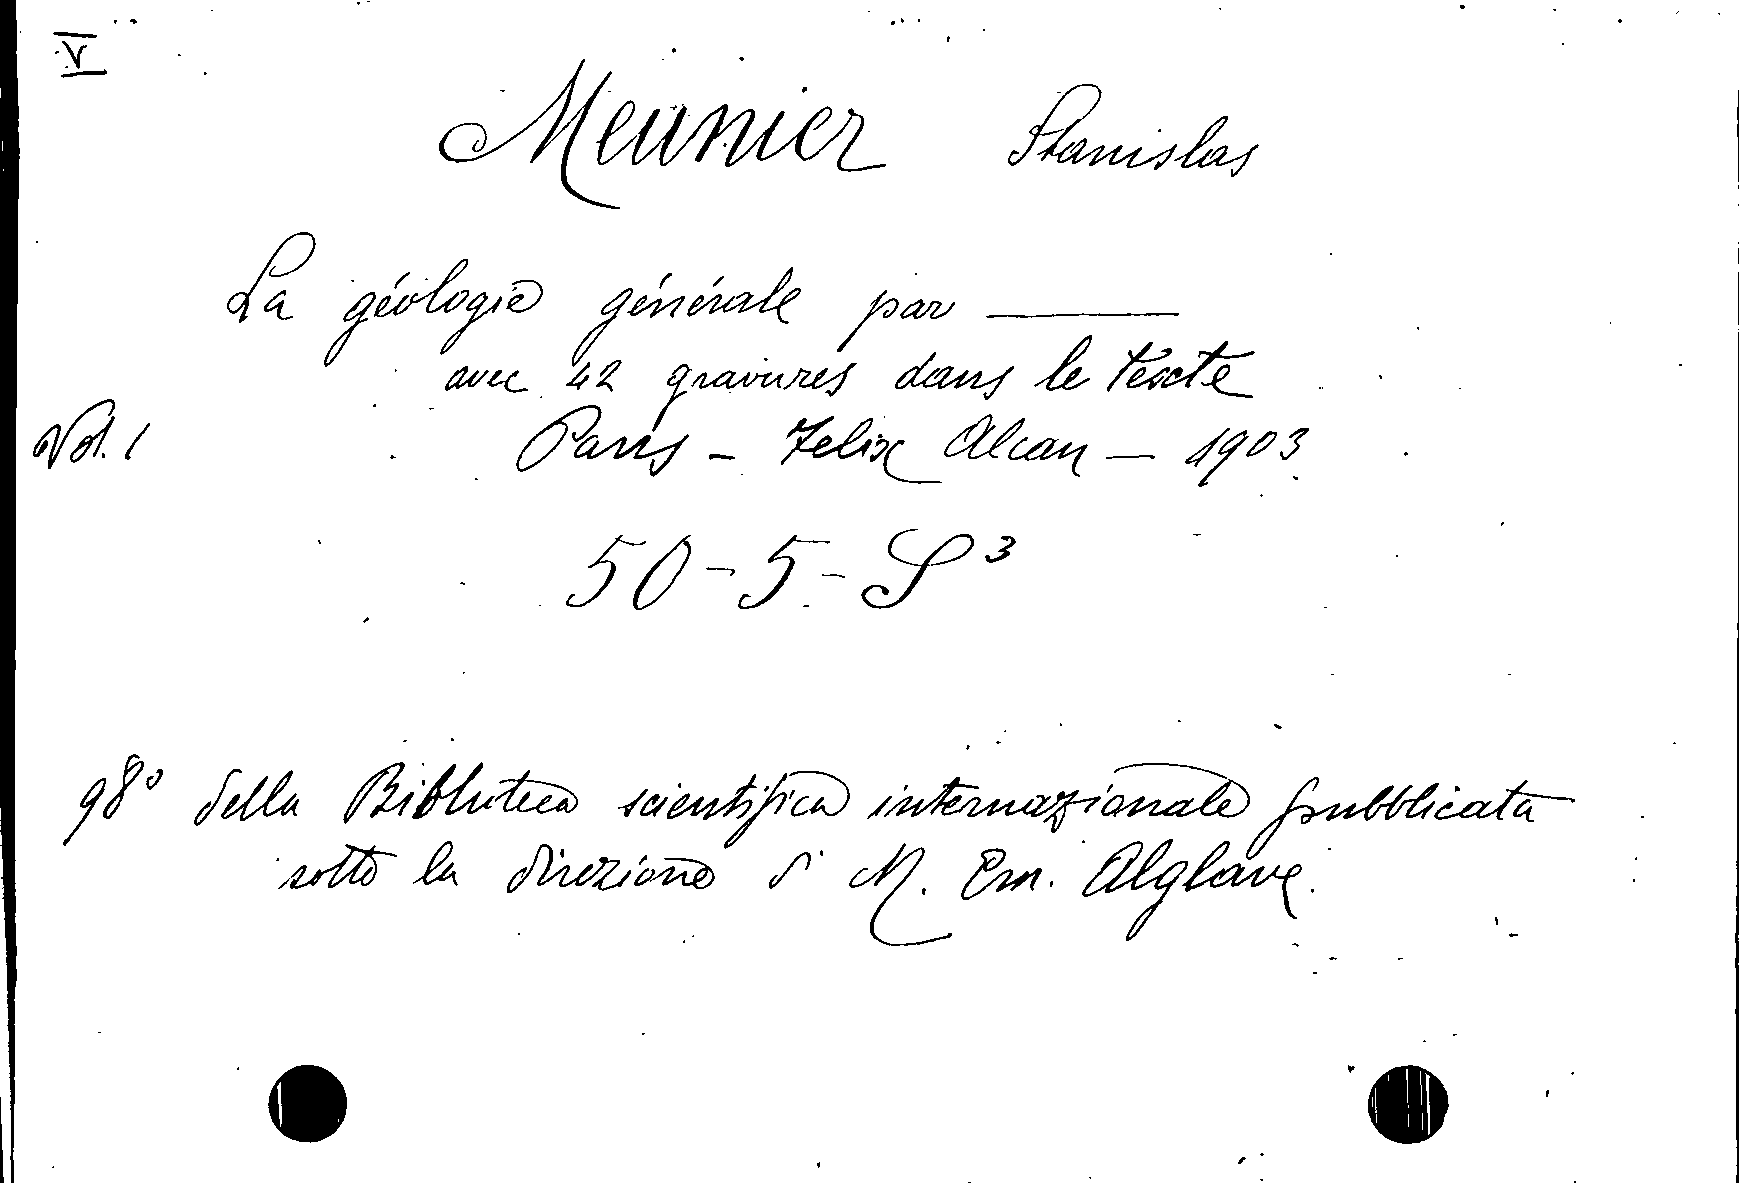 V
Meunier Stanislas
La géologie générale par ———
avec 42 gravures dans le texte
Vol. 1 Paris - Felix Alcan - 1903
50-5-S³
98° della Biblioteca scientifica internazionale pubblicata
sotto la direzione di M. Em. Alglave.